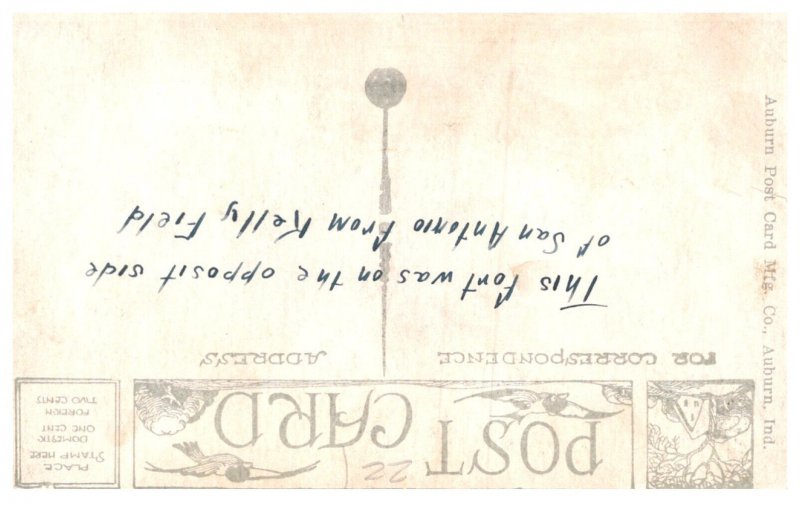 PLACE
STAMP HERE
DOMESTIC
ONE CENT
FOREIGN
TWO CENTS
POST CARD
22
FOR CORRESPONDENCE
ADDRESS
This fort was on the opposit side
of San Antonio from Kelly Field
Auburn Post Card Mfg. Co., Auburn, Ind.